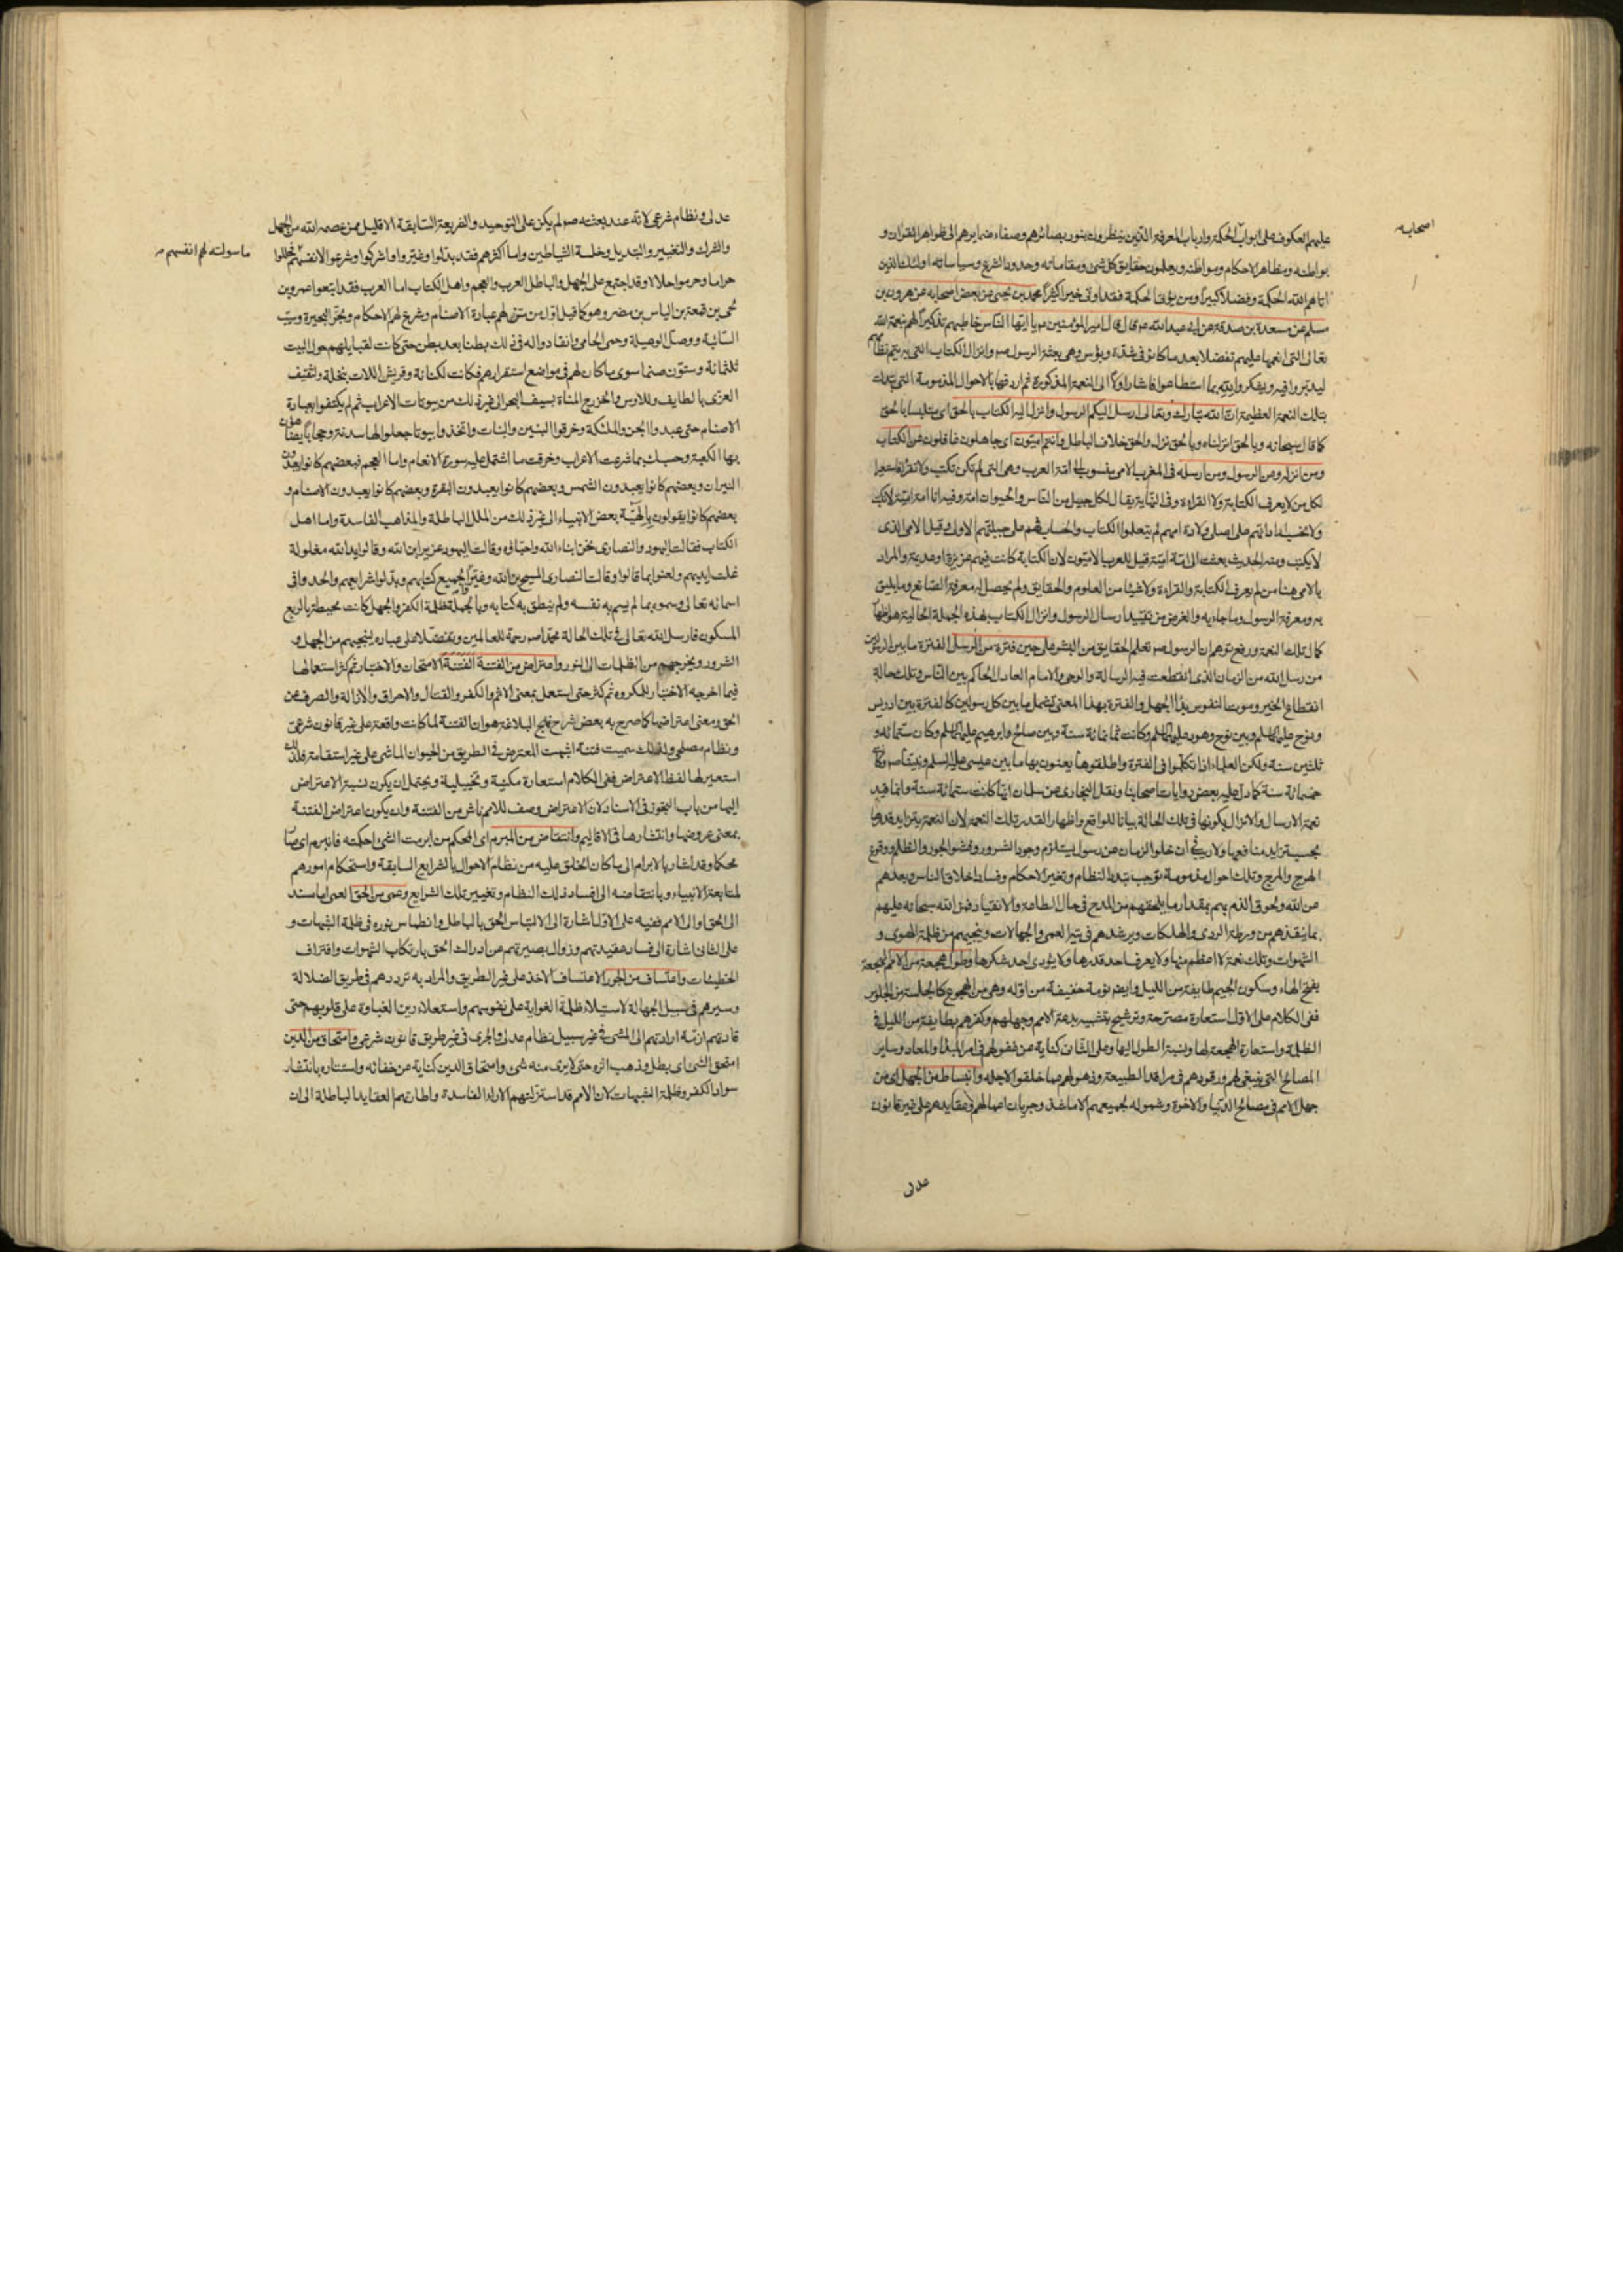 اصحابه
عليهم العكوف على ابواب الحكمة وارباب المعرفة الذين ينظرون بنور بصائرهم وصفاء ضمايرهم الى ظواهر القران و
بواطنه ومظاهر الاحكام ومواطنه ويعلمون حقايق كل شئ ومقاماته وحدود الشرع وسياساته اولئك الذين
اتاهم الله الحكمة وفضلا كبيرا ومن يؤت الحكمة فقد اوتى خيرا كثيرا محمد بن يحيى عن بعض اصحابه عن هرون بن
مسلم عن مسعدة بن صدقة عن ابى عبد الله ع قال قال امير المؤمنين ع يا ايها الناس خاطبهم تذكيرا لهم بنعمة الله
تعالى التى انعمها عليهم تفضلا بعد ما كانوا فى شدة وبؤس وهى بعثة الرسول ص وانزال الكتاب التى بهم يتم نظامهم
ليدبروا فيه ويفكروا به بما استطاعوا فاشار اولا الى النعمة المذكورة ثم اردفها بالاحوال المذمومة التى تبدلت
بتلك النعمة العظيمة ان الله تبارك وتعالى ارسل اليكم الرسول وانزل اليه الكتاب بالحق اى متلبسا بالحق
كما قال سبحانه وبالحق انزلناه وبالحق نزل والحق خلاف الباطل وانتم اميون اى جاهلون غافلون عن الكتاب
ومن انزله وعن الرسول ومن ارسله فى المغرب الامى منسوب الى امة العرب وهى التى لم تكن تكتب ولا تقرأ فاستعير
لكل من لا يعرف الكتابة ولا القراءة وفى النهاية يقال لكل جيل من الناس والحيوان امة وفيه انا امة امية لا نكتب
ولا نحسب اراد انهم على اصل ولادة امهم لم يتعلموا الكتاب والحساب فهم على جبلتهم الاولى وقيل الامى الذى
لا يكتب ومنه الحديث بعثت الى امة امية قيل للعرب الاميون لان الكتابة كانت فيهم عزيزة او عديمة والمراد
بالامى هنا من لم يعرف الكتابة والقراءة ولا شيئا من العلوم والحقايق ولم يحصل له معرفة الصانع وما يليق
به ومعرفة الرسول وما جاء به والغرض من تقييد ارسال الرسول وانزال الكتاب بهذه الجملة الحالية هو اظهار
كمال تلك النعمة ورفع توهم ان الرسول ص تعلم الحقايق من البشر على حين فترة من الرسل الفترة ما بين الرسولين
من رسل الله من الزمان الذى انقطعت فيه الرسالة والوحى والامام العادل الحاكم بين الناس وتلك حالة
انقطاع الخير وموت النفوس بداء الجهل والفترة بهذا المعنى تشمل ما بين كل رسولين كالفترة بين ادريس
ونوح عليهما السلم وبين نوح وهود عليهما السلم وكانت ثمانمائة سنة وبين صالح وابرهيم عليهما السلم وكان ستمائة و
ثلثين سنة ولكن العلماء اذا تكلموا فى الفترة واطلقوها يعنون بها ما بين عيسى عليه السلم ونبينا ص وكانت
خمسمائة سنة كما دل عليه بعض روايات اصحابنا ونقل البخارى عن سلمان انها كانت ستمائة سنة وانما قيد
نعمة الارسال والانزال بكونها فى تلك الحالة بيانا للواقع واظهارا لقدر تلك النعمة لان النعمة يتزايد قدرها
بحسب تزايد منافعها ولا ريب فى ان خلوا الزمان عن رسول يستلزم وجود الشرور وفشو الجور والظلم ووقوع
الهرج والمرج وتلك احوال مذمومة توجب تبدد النظام وتغير الاحكام وفساد اخلاق الناس وبعدهم
عن الله ولحوق الذم بهم بمقدار ما يلحقهم من المدح فى حال الطاعة والانقياد فمن الله سبحانه عليهم
بما ينقذهم من ورطة الردى والهلكات ويرشدهم فى تيه العمى والجهالات وينجيهم من ظلمة الهوى و
الشهوات وتلك نعمة لا اعظم منها ولا يعرف احد قدرها ولا يؤدى احد شكرها وطول هجعة من الامم الهجعة
بفتح الهاء وسكون الجيم طايفة من الليل وايضا نومة خفيفة من اوله وهى من الهجوع كالجلسة من الجلوس
ففى الكلام على الاول استعارة مصرحة وترشيح بتشبيه بدعة الامم وجهلهم وكفرهم بطايفة من الليل فى
الظلمة واستعارة الهجعة لها ونسبة الطول اليها وعلى الثانى كناية عن غفولهم فى امر المبدأ والمعاد وساير
المصالح التى ينبغى لهم ورقودهم فى مراقد الطبيعة وذهولهم عما خلقوا لاجله وانبساط من الجهل اى من
جهل الامم فى مصالح الدنيا والاخرة وشموله لجميعهم الا ما شذ وجريان اعمالهم وعقايدهم على غير قانون
عدلى
عدلى ونظام شرعى لانه عند بعثته ص لم يكن على التوحيد والشريعة السابقة الا قليل ممن عصمه الله من الجهل
والشرك والتغيير والتبديل وخلسة الشياطين واما اكثرهم فقد بدلوا وغيروا واشركوا وشرعوا لانفسهم فحللوا
ما سولته لهم انفسهم
حراما وحرموا حلالا وقد اجتمع على الجهل والباطل العرب والعجم واهل الكتاب اما العرب فقد اتبعوا عمرو بن
لحى بن قمعة بن الياس بن مضر وهو كما قيل اول من سن لهم عبادة الاصنام وشرع لهم الاحكام وبحر البحيرة وسيب
السائبة ووصل الوصيلة وحمى الحامى وانقادوا له فى ذلك بطنا بعد بطن حتى كانت لقبايلهم حول البيت
ثلثمائة وستون صنما سوى ما كان لهم فى مواضع استقرارهم فكانت لكنانة وقريش اللات بنخلة ولثقيف
العزى بالطايف وللاوس والخزرج المناة بسيف البحر الى غير ذلك من بيوتات الاعراب ثم لم يكتفوا بعبادة
الاصنام حتى عبدوا الجن والملئكة وخرقوا البنين والبنات واتخذوا بيوتا جعلوا لها سدنة وحجابا يضاهون
بها الكعبة وحسبك بما شرعت الاعراب وخرقت ما اشتمل عليه سورة الانعام واما العجم فبعضهم كانوا يعبدون
النيران وبعضهم كانوا يعبدون الشمس وبعضهم كانوا يعبدون البقرة وبعضهم كانوا يعبدون الاصنام و
بعضهم كانوا يقولون بالهية بعض الانبياء الى غير ذلك من الملل الباطلة والمذاهب الفاسدة واما اهل
الكتاب فقالت اليهود والنصارى نحن ابناء الله واحباؤه وقالت اليهود عزير ابن الله وقالوا يد الله مغلولة
غلت ايديهم ولعنوا بما قالوا وقالت النصارى المسيح بن الله وغيروا لجميع كتابهم وبدلوا شرايعهم والحدوا فى
اسمائه تعالى وسموه بما لم يسم به نفسه ولم ينطق به كتابه وبالجملة ظلمة الكفر والجهل كانت محيطة بالربع
المسكون فارسل الله تعالى فى تلك الحالة محمدا ص رحمة للعالمين وتفضلا على عباده لينجيهم من الجهل و
الشرور ويخرجهم من الظلمات الى النور واعتراض من الفتنة الفتنة الامتحان والاختبار ثم كثر استعمالها
فيما اخرجه الاختبار للمكروه ثم كثر حتى استعمل بمعنى الاثم والكفر والقتال والاحراق والازالة والصرف عن
الحق ومعنى اعتراضها كما صرح به بعض شراح نهج البلاغة هو ان الفتنة لما كانت واقعة على غير قانون شرعى
ونظام مصلحى ولذلك سميت فتنة اشبهت المعترض فى الطريق من الحيوان الماشى على غير استقامة فلذلك
استعير لها لفظ الاعتراض ففى الكلام استعارة مكنية وتخييلية ويحتمل ان يكون نسبة الاعتراض
اليها من باب التجوز فى الاسناد لان الاعتراض وصف للامم ناش من الفتنة وان يكون اعتراض الفتنة
بمعنى عروضها وانتشارها فى الاقاليم وانتقاض من المبرم اى المحكم من ابرمت الشئ احكمته فانبرم اى صار
محكما وقد اشار بالابرام الى ما كان الخلق عليه من نظام الاحوال بالشرايع السابقة واستحكام امورهم
لمتابعة الانبياء وبانتقاضه الى افساد ذلك النظام وتغيير تلك الشرايع وعمى من الحق العمى اما مسند
الى الحق او الى الامم ففيه على الاول اشارة الى الالتباس الحق بالباطل وانطماس نوره فى ظلمة الشبهات و
على الثانى اشارة الى فساد عقيدتهم وزوال بصيرتهم عن ادراك الحق بارتكاب الشهوات واقتراف
الخطيئات واعتساف من الجور الاعتساف الاخذ على غير الطريق والمراد به ترددهم فى طريق الضلالة
وسيرهم فى سبيل الجهالة لاستيلاء ظلمة الغواية على نفوسهم واستعلاء رين الغباوة على قلوبهم حتى
قادتهم ازمة ارادتهم الى المشى فى غير سبيل نظام عدلى والجرى فى غير طريق قانون شرعى وامتحاق من الدين
امتحق الشئ اى بطل وذهب اثره حتى لا يرى منه شئ وامتحاق الدين كناية عن خفائه واستتاره بانتشار
سواد الكفر وظلمة الشبهات لان الامم قد استزلتهم الاراء الفاسدة واطارتهم العقايد الباطلة الى ان